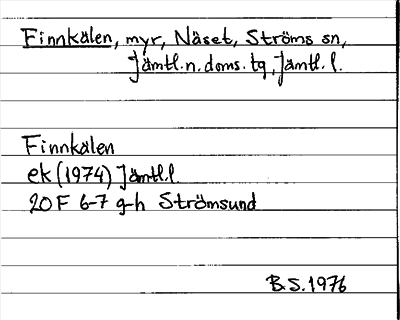 Finnkälen, myr, Näset, Ströms sn,
Jämtl.n.doms. tg, Jämtl.l.
Finnkälen
ek (1974) Jämtl.l.
20 F 6-7 g-h Strömsund
B.S. 1976